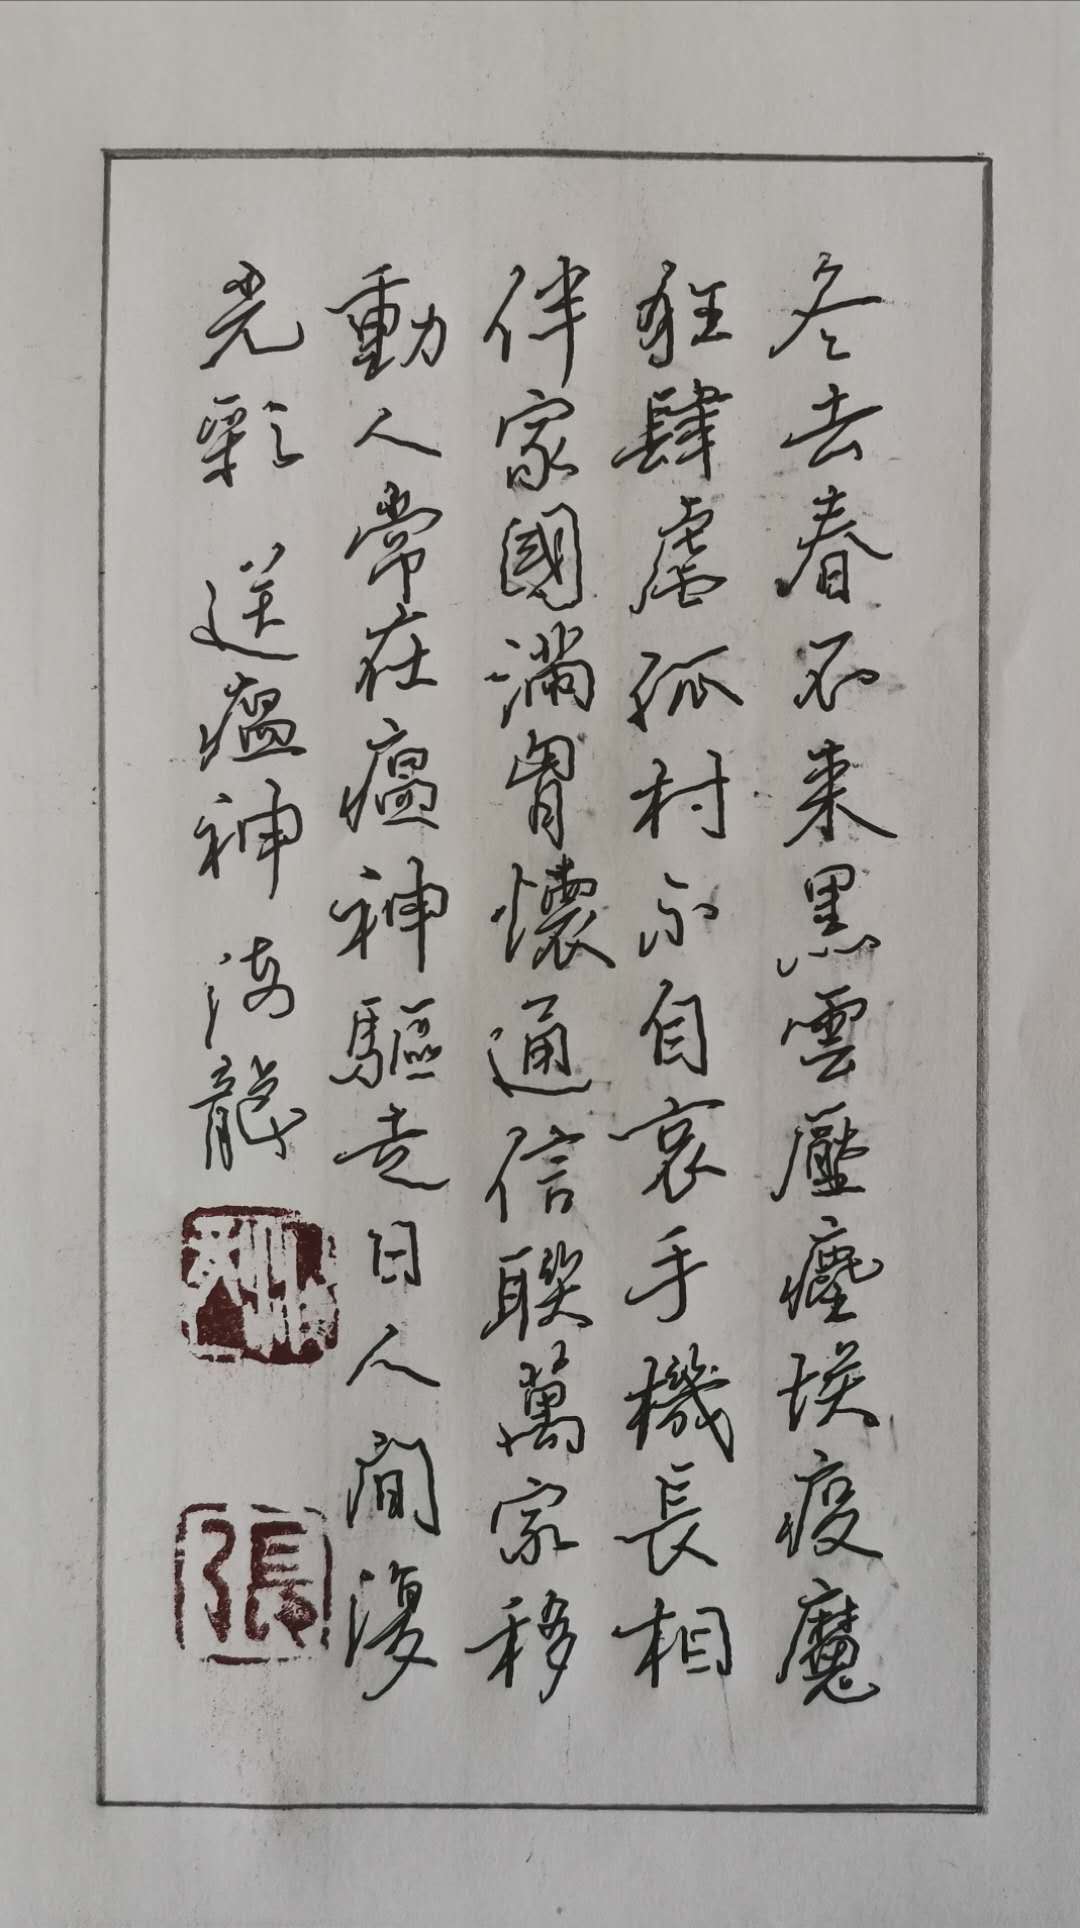 冬去春不来黑雲壓塵埃疫魔
狂肆虐孤村不自哀手機長相
伴家國滿胸懷通信聯萬家移
動人常在瘟神驅走日人間復
光彩 送瘟神 海龍
張